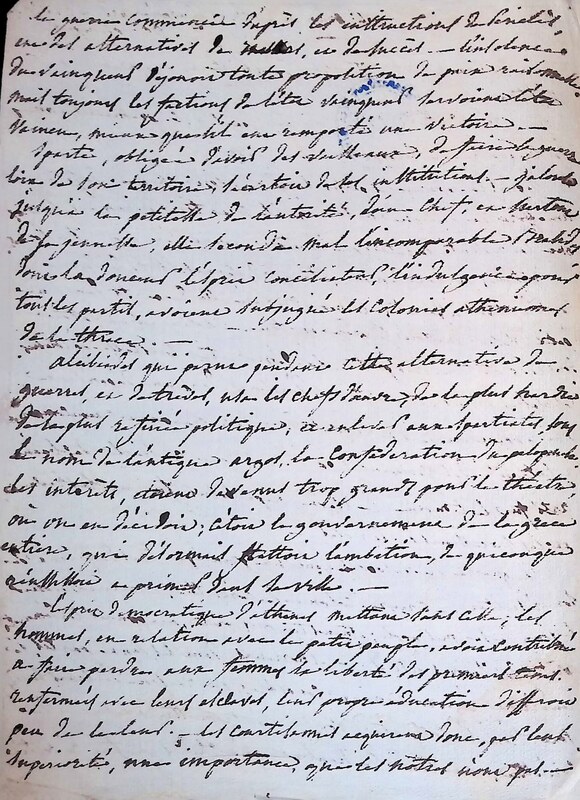 la guerre commencée d'après les instructions de Périclès,
eut des alternatives de revers, et de succès. — L'insolence
du vainqueur éloignoit toute proposition de paix raisonnable
mais toujours les factions de l'état vainqueur servoient l'état
vaincu, même quand il eut remporté une victoire —
Sparte obligée d'avoir des vaisseaux, de faire la guerre
loin de son territoire, s'écartoit de ses institutions. — jalouse
jusqu'à la petitesse de l'autorité, d'un chef, et surtout
de sa jeunesse, elle seconda mal l'incomparable Brasidas
dont la douceur l'esprit conciliateur, l'indulgence pour
tous les partis, avoient subjugué les colonies athéniennes
de la thrace. —
Alcibiades qui parut pendant cette alternative de
guerres, et de trèves, usa les chefs d'œuvre, de la plus hardie
de la plus rafinée politique, et enleva aux spartiates, sous
le nom de l'antique argos, la confédération du péloponèse
les intérêts, étoient devenus trop grands pour le théâtre
où on en décidoit; c'étoit le gouvernement de la grèce
entière, qui désormais flattoit l'ambition, de quiconque
réussissoit a primer dans sa ville. —
L'esprit démocratique d'athènes mettant sans cesse, les
hommes, en relation avec le petit peuple, avoit contribué
a faire perdre aux femmes la liberté des premiers tems.
renfermées avec leurs esclaves, leur propre éducation différoit
peu de la leur. — les courtisannes acquirent donc, par leur
supériorité, une importance, que les nôtres n'ont pas. —